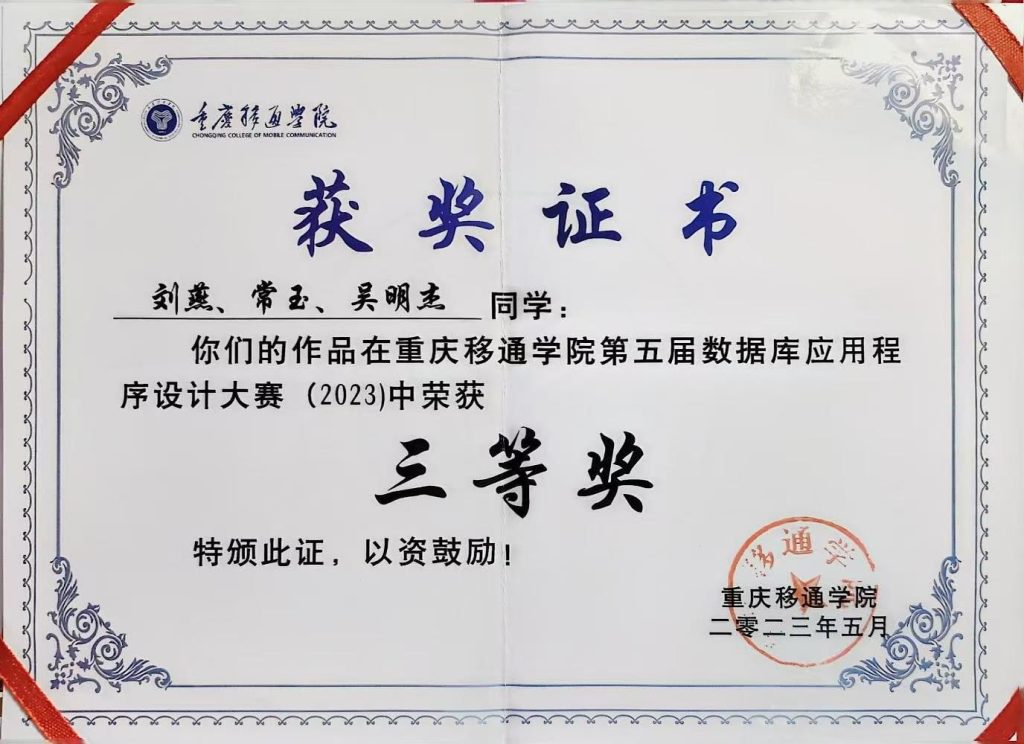 重庆移通学院
CHONGQING COLLEGE OF MOBILE COMMUNICATION
获奖证书
刘燕、常玉、吴明杰 同学：
你们的作品在重庆移通学院第五届数据库应用程
序设计大赛（2023)中荣获
三等奖
特颁此证，以资鼓励！
移通学院
重庆移通学院
二零二三年五月